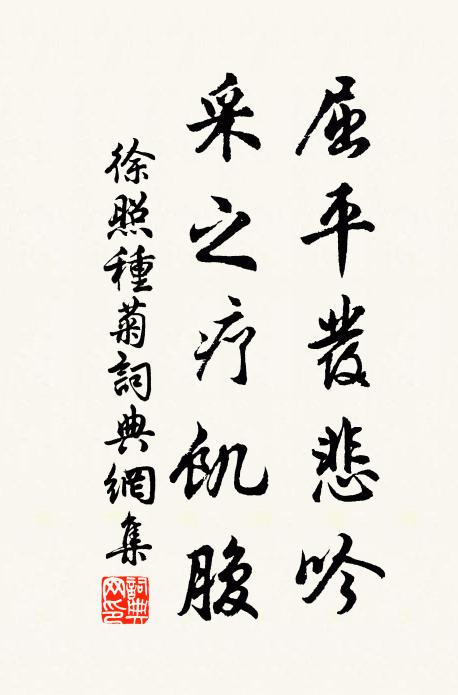 屈平發悲吟
采之疗飢腹
徐照種菊詞典網集
詞典网印